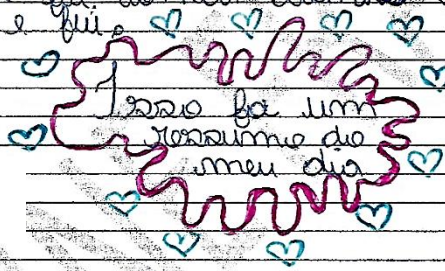 e fui.
Isso fo um
rossumo do
meu dia